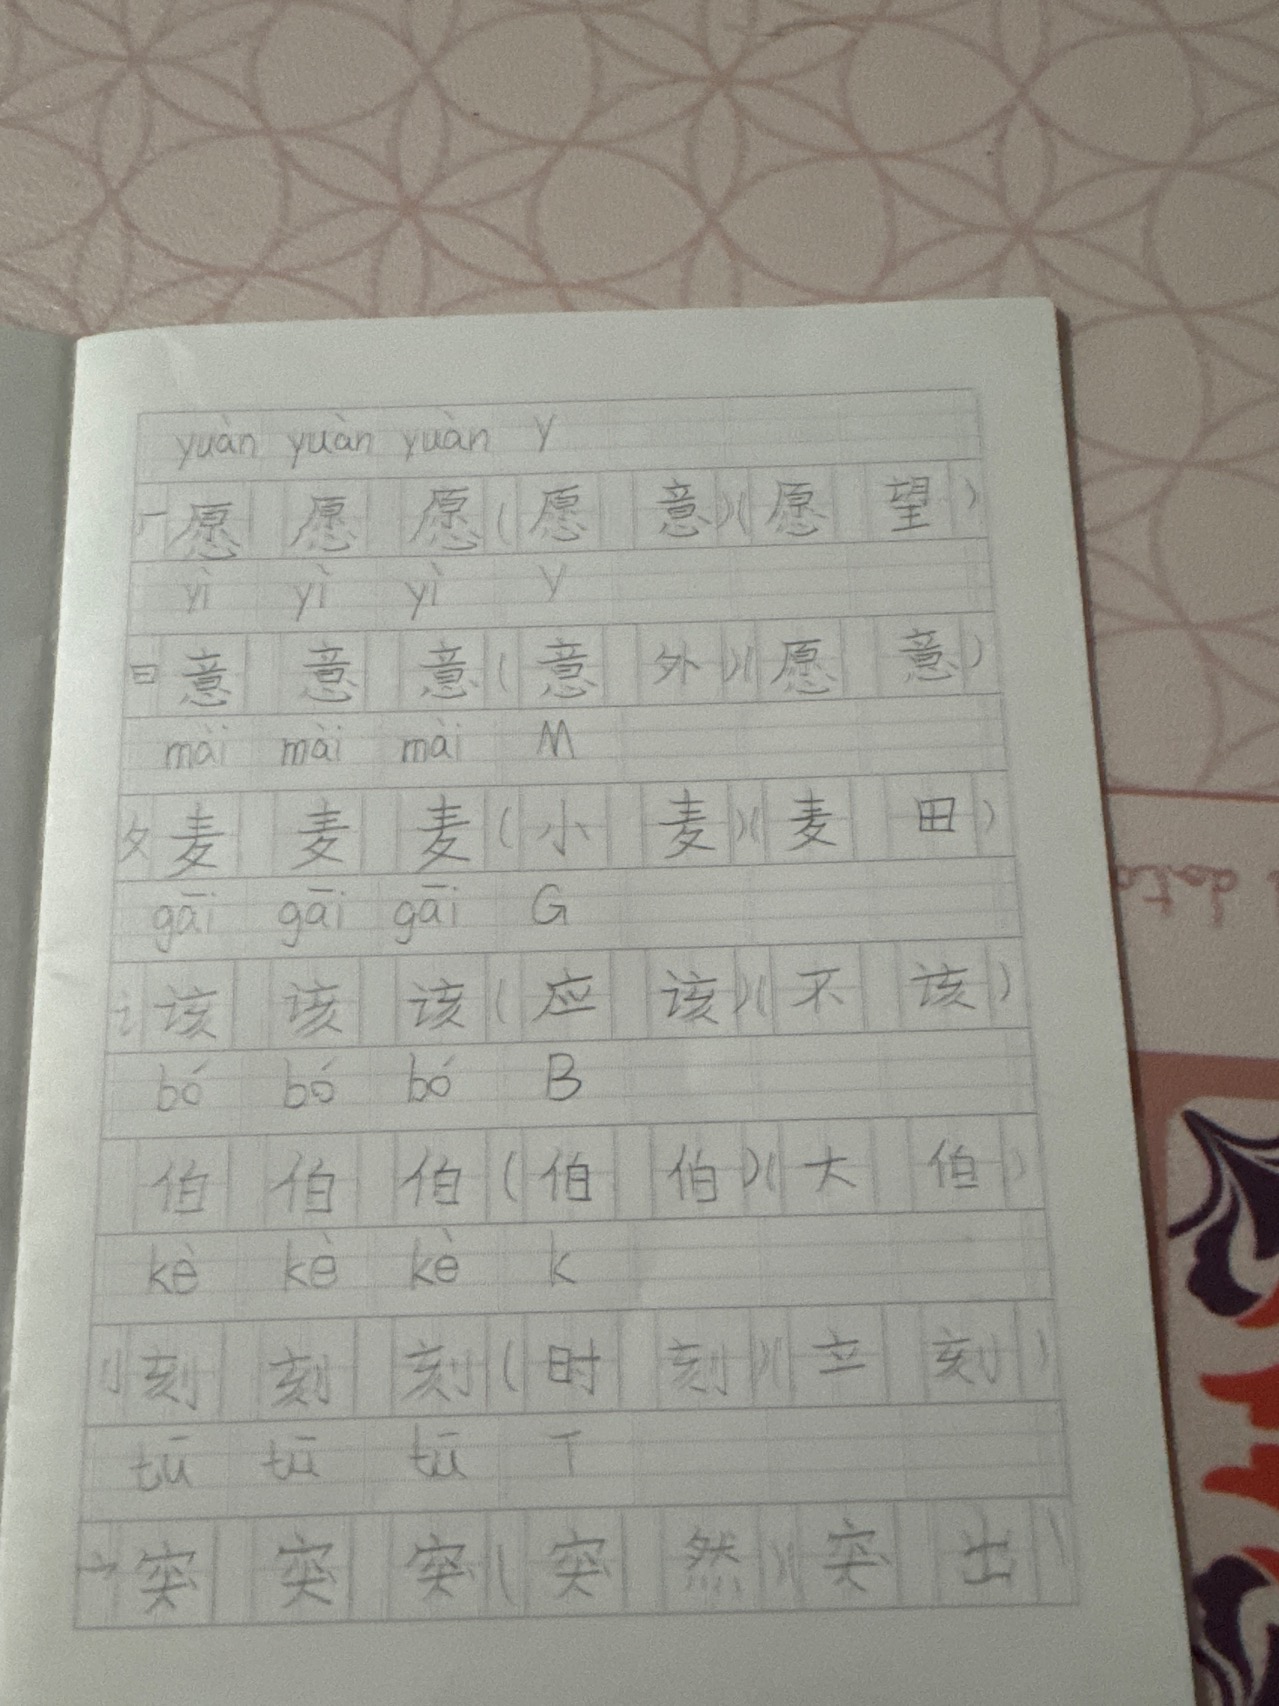 yuàn yuàn yuàn Y
厂愿 愿 愿(愿 意)(愿 望)
yì yì yì Y
日意 意 意(意 外)(愿 意)
mài mài mài M
夂麦 麦 麦(小 麦)(麦 田)
gāi gāi gāi G
讠该 该 该(应 该)(不 该)
bó bó bó B
伯 伯 伯(伯 伯)(大 伯)
kè kè kè K
刂刻 刻 刻(时 刻)(立 刻)
tū tū tū T
宀突 突 突(突 然)(突 出)